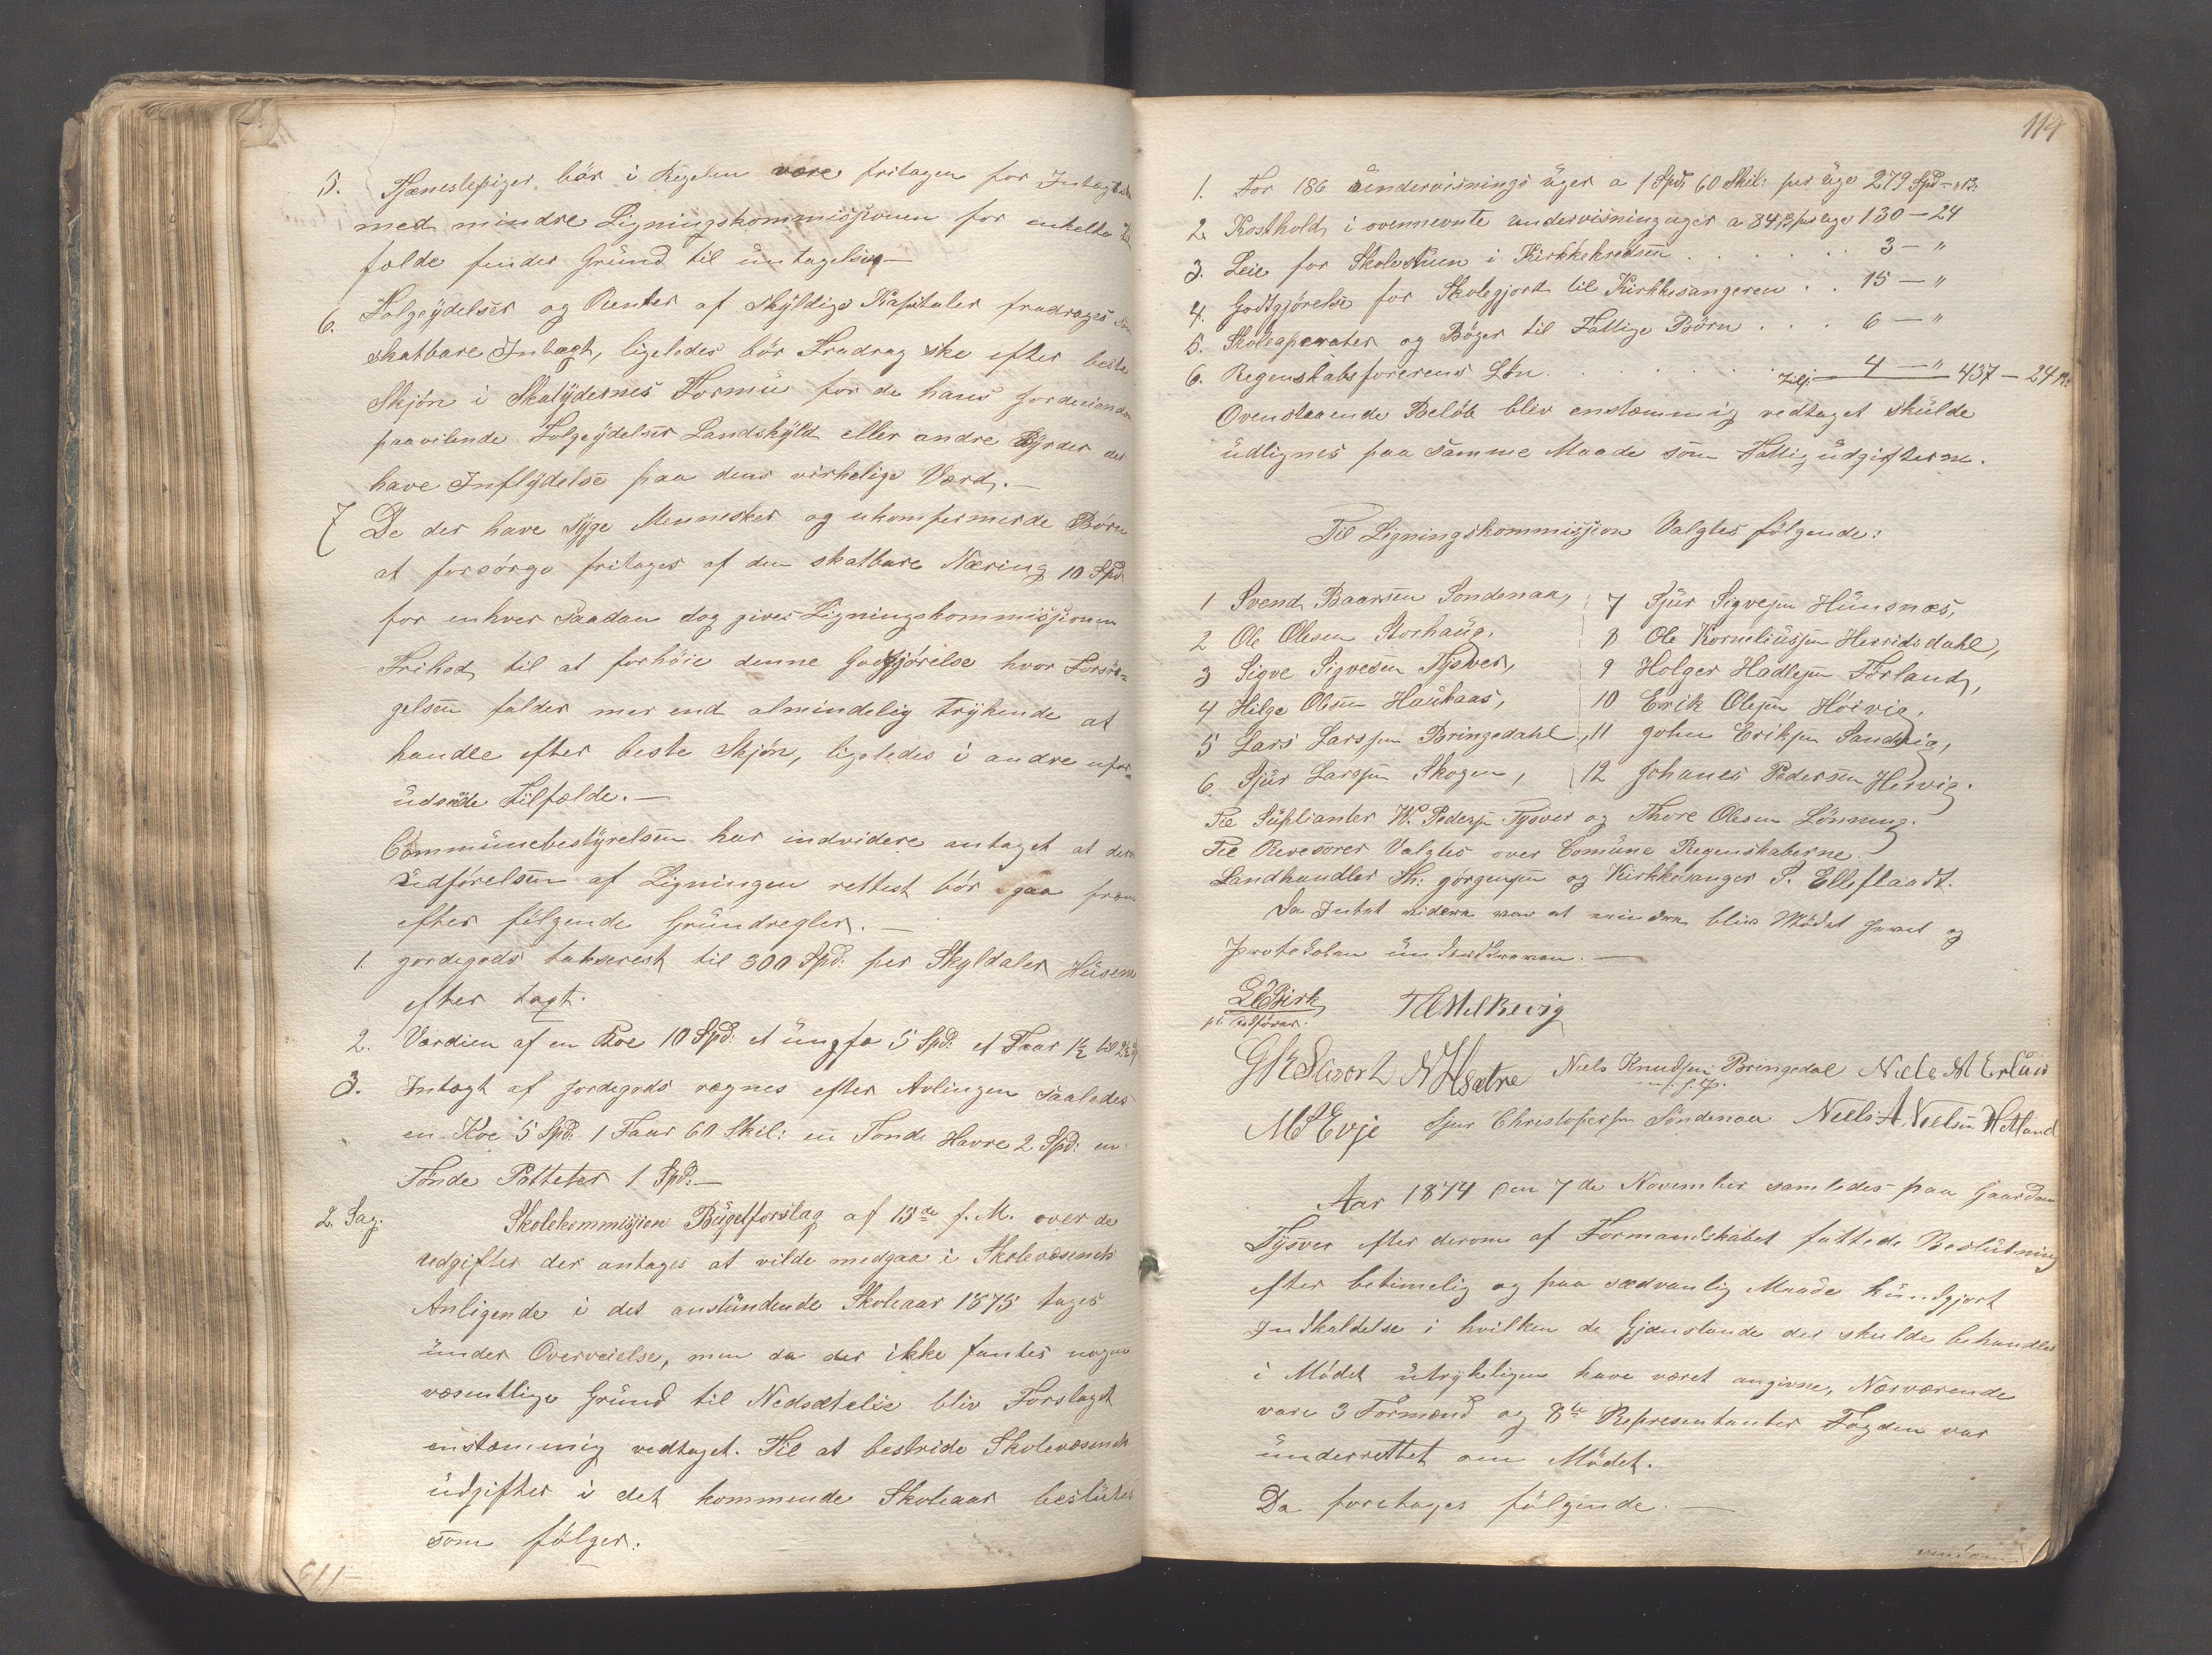 5. Tjenestepiger bør i Regelen være fritagen for
med mindre Ligningskommissionen for enkelte
fælde finder Grund til undtagelse.—
6. Folgeydelser og Renter af skyldige Kapitaler fradrages
skatbare Intægt, ligeledes bør Fradrag ske efter beste
Skjøn i Skatydernes Formue for de hans
paavilende Folgeydelser Landskyld eller andre Byrder der
have Inflydelse paa dens virkelige Værd.—
7 De der have syge Mennesker og ukonfermerde Børn
at forsørge fritages af den skatbare Næring 10 Spd.
for enhver saadan dog gives Ligningskommissionen
Frihed til at forhøie denne Godtgjørelse hvor Forsør-
gelsen falder mer end almindelig trykende at
handle efter beste Skjøn, ligeledes i andre ufor-
udsede Tilfælde.—
Commünebestyrelsen har indvidere antaget at
Udførelsen af Ligningen rettest bør gaa frem
efter følgende Grundregler.—
1. Jordegods takserest til 300 Spd. per Skyldaler Husene
efter taxt.
2. Værdien af en Koe 10 Spd: et ungfæ 5 Spd: et Faar 1½ til 2½
3. Intægt af Jordegods regnes efter Avlingen saaledes
en Koe 5 Spd: 1 Faar 60 Skil: en Tønde Havre 2 Spd: en
Tønde Potteter 1 Spd:—
2. Sag. Skolekommisjion Bügetforslag af 13de f. M. over de
Udgifter der antages at vilde medgaa i Skolevæsenets
Anligende i det anstundende Skoleaar 1875 tages
under Overveielse, men da der ikke fantes nogen
væsentlige Grund til Nedsættelse blev Forslaget
enstæmmig vedtaget. Til at bestride Skolevæsenets
udgifter i det kommende Skoleaar beslutes
som følger:
114
1. For 186 undervisnings uger a 1 Spd 60 Skil: per uge 279 Spd — "
2. Kosthold i ovennevnte undervisninguger a 84 ß per uge 130 — 24
3. Leie for Skolestuen i Kirkkekredsen . . . . . 3 — "
4. Godtgjørelse for Skolegjort til Kirkkesangeren . . 15 — "
5. Skoleaperater og Bøger til Fattige Børn . . . 6 — "
6. Regenskabsførerens Løn . . . . . 4 — " 437 — 24
Ovenstaaende Beløb blev enstæmmig vedtaget skulde
udlignes paa samme Maade som Fattigudgifterne.
Til Ligningskommissjion Valgtes følgende:
1 Svend Baarsen Søndenaa, 7 Sjur Sigvesen Hünsnæs,
2 Ole Olesen Storhaug. 8 Ole Korneliussen Herridsdahl,
3 Sigve Sigvesen Tysver, 9 Holger Hadlesen Førland,
4 Hilge Olesen Haukaas, 10 Erik Olesen Høivig,
5 Lars Larssen Bringedahl, 11 John Eriksen Sandvig,
6. Sjur Larssen Skogen, 12 Johanes Pedersen Hervig.
Til Suplianter W. Peders. Tysver og Thore Olesen Lønning.
Til Revesorer Valgtes over Comune Regenskaberne
Landhandler Th: Jørgensen og Kirkkesanger P. Elleflaadt.
Da Intet videre var at erindre blev Mødet hævet og
Protokolen underskreven.—
Birk T Melkevig
N Hsætre Niels Knudsen Bringedal Niels M Erland
M Evje Sjur Christofersen Søndenaa Niels A. Nielsen Hetland
Aar 1874 den 7de November samledes paa Gaarden
Tysver efter derom af Formandskabet fattede Beslutning
efter betimelig og paa sædvanlig Maade kundgjort
Indkaldelse i hvilken de Gjenstande der skulde behandles
i Mødet utrykeligen have været angivne, Nærværende
vare 3 Formænd og 8te Representanter Fogden var
underrettet om Mødet.
Da foretages følgende.—